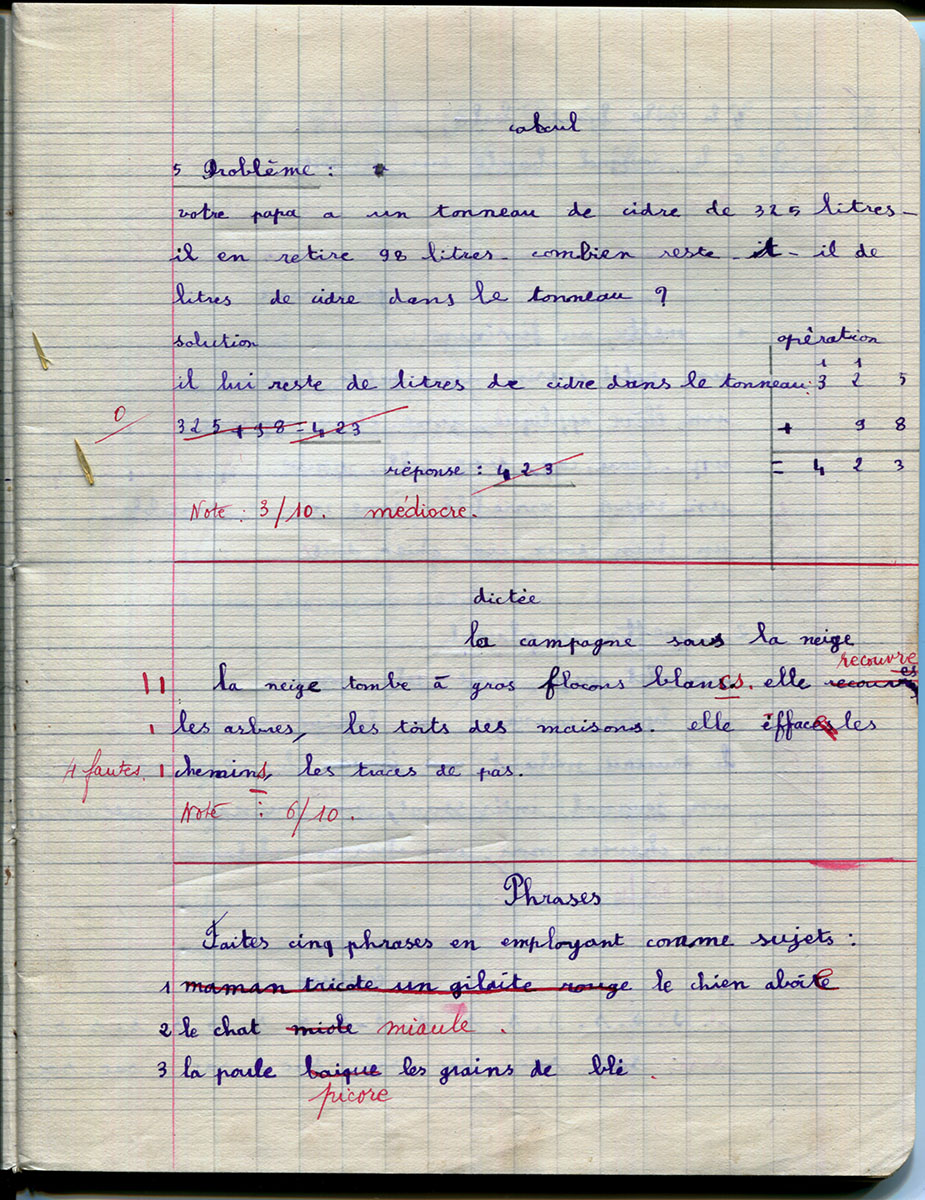 calcul
5 Problème :
votre papa a un tonneau de cidre de 325 litres -
il en retire 98 litres - combien reste - it - il de
litres de cidre dans le tonneau ?
solution
opération
1 1
il lui reste de litres de cidre dans le tonneau : 3 2 5
0
325 + 98 = 423
+ 9 8
réponse : 423
= 4 2 3
Note : 3/10. médiocre.
dictée
la campagne sous la neige
recouvre
11 la neige tombe à gros flocons blancs. elle
1 les arbres, les toits des maisons. elle effaces les
4 fautes. 1 chemins, les traces de pas.
Note : 6/10.
Phrases
Faites cinq phrases en employant comme sujets :
1 maman tricote un gilaite rouge le chien aboie
2 le chat miole miaule .
3 la poule baique les grains de blé .
picore